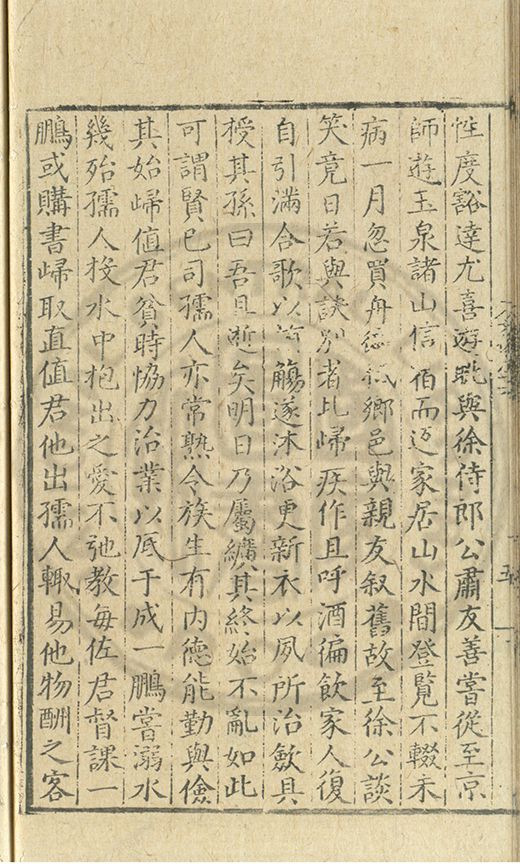 性度豁達尤喜遊眺與徐侍郎公肅友善嘗從至京
師遊玉泉諸山信宿而返家居山水間登覧不輟未
病一月忽買舟徧抵鄉邑與親友叙舊故至徐公談
笑竟日若與訣別者比歸疾作且呼酒徧飲家人復
自引滿合歌以侑觴遂沐浴更新衣以夙所治歛具
授其孫曰吾且逝矣明日乃屬纊其終始不亂如此
可謂賢已司孺人亦常熟令族生有内德能勤與儉
其始歸值君貧時協力治業以底于成一鵬嘗溺水
幾殆孺人投水中抱出之愛不弛教每佐君督課一
鵬或購書歸取直值君他出孺人輙易他物酬之客